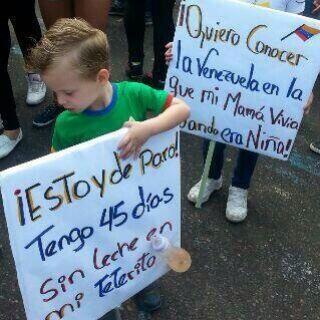 ¡Quiero Conocer
la Venezuela en la
que mi Mamá Vivia
uando era Niña!
¡ESToy de Paro!
Tengo 45 días
Sin leche en
mi TeTerito